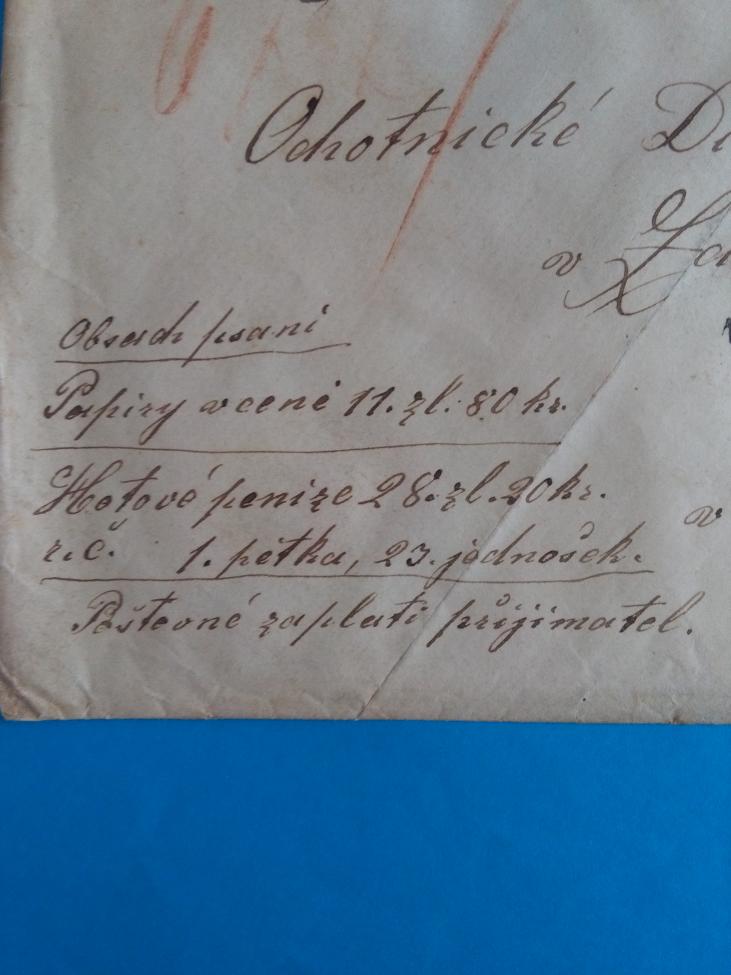 Ochotnické
v
Obsah psaní
Papíry v ceně 11. zl. 80 kr.
Hotové penize 28. zl. 20 kr.
v
r. č. 1. pětka, 23. jednošek.
Poštovné zaplatí přijimatel.